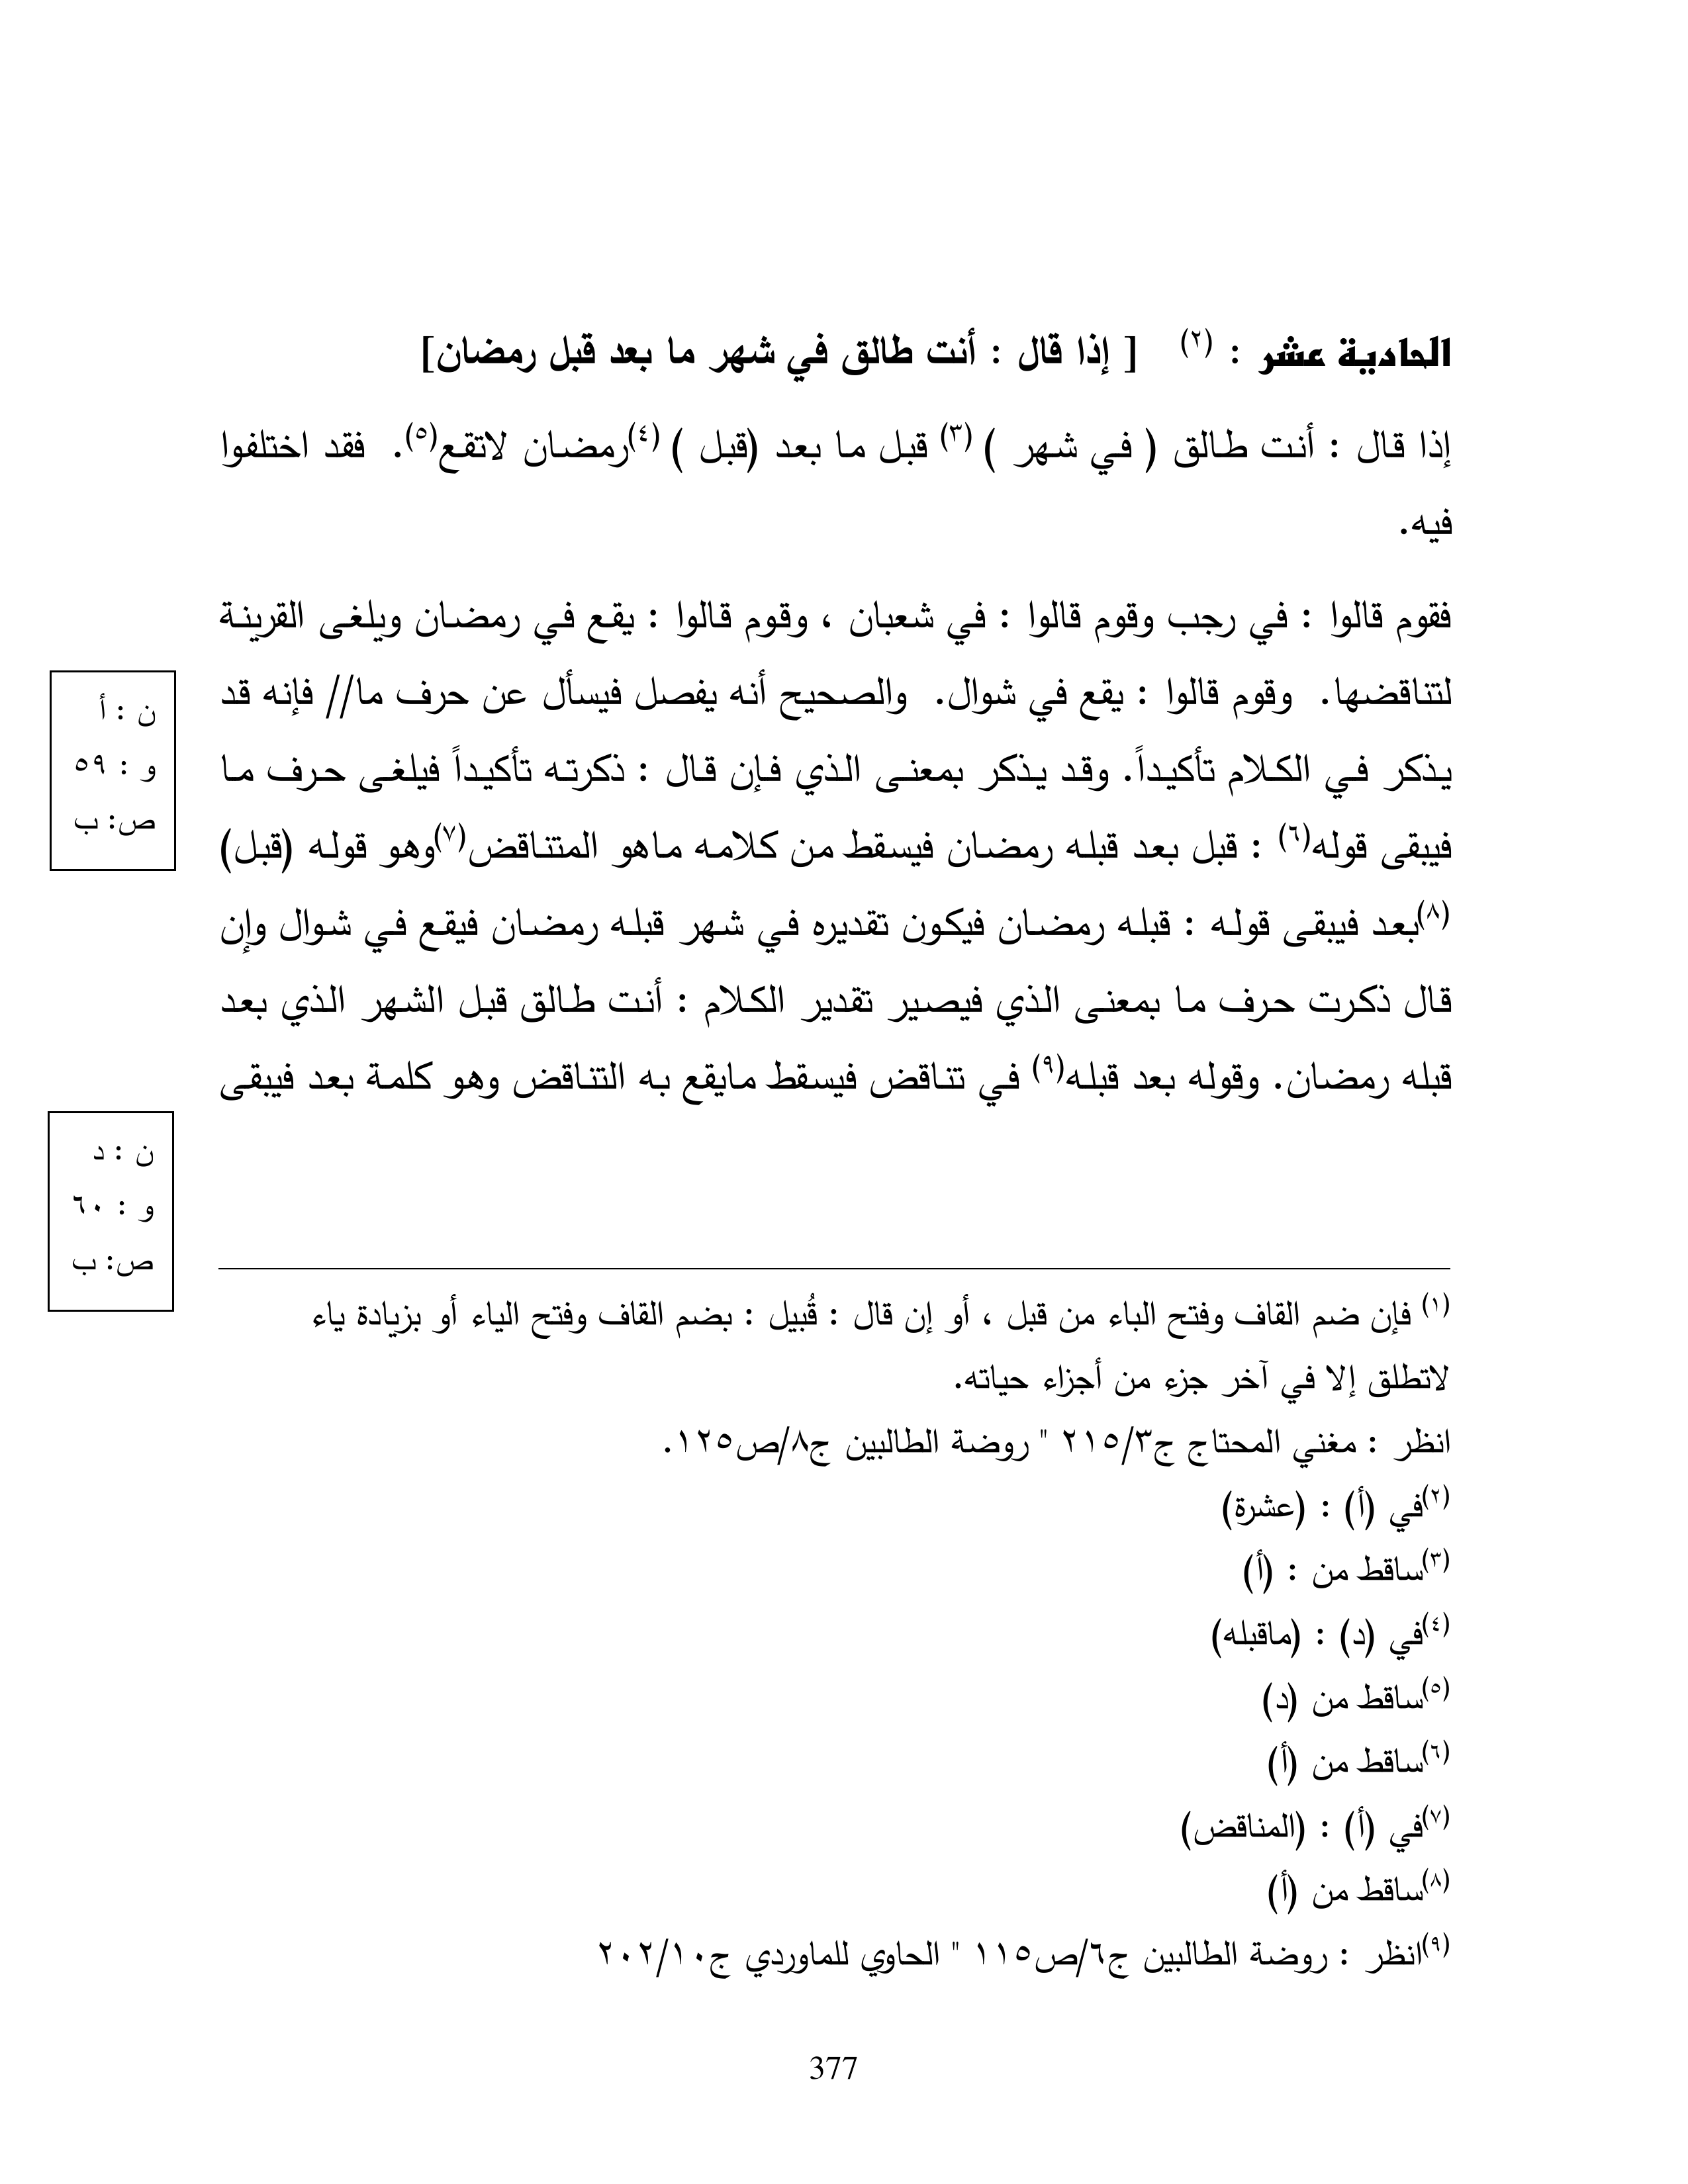 الحادية عشر : (٢) [ إذا قال : أنت طالق في شهر ما بعد قبل رمضان]
إذا قال : أنت طالق ( في شهر ) (٣) قبل ما بعد (قبل ) (٤)رمضان لاتقع(٥). فقد اختلفوا
فيه.
فقوم قالوا : في رجب وقوم قالوا : في شعبان ، وقوم قالوا : يقع في رمضان ويلغى القرينة
لتناقضها. وقوم قالوا : يقع في شوال. والصحيح أنه يفصل فيسأل عن حرف ما// فإنه قد
يذكر في الكلام تأكيداً. وقد يذكر بمعنى الذي فإن قال : ذكرته تأكيداً فيلغى حرف ما
فيبقى قوله(٦) : قبل بعد قبله رمضان فيسقط من كلامه ماهو المتناقض(٧)وهو قوله (قبل)
(٨)بعد فيبقى قوله : قبله رمضان فيكون تقديره في شهر قبله رمضان فيقع في شوال وإن
قال ذكرت حرف ما بمعنى الذي فيصير تقدير الكلام : أنت طالق قبل الشهر الذي بعد
قبله رمضان. وقوله بعد قبله(٩) في تناقض فيسقط مايقع به التناقض وهو كلمة بعد فيبقى
ن : أ
و : ٥٩
ص: ب
ن : د
و : ٦٠
ص: ب
(١) فإن ضم القاف وفتح الباء من قبل ، أو إن قال : قُبيل : بضم القاف وفتح الياء أو بزيادة ياء
لاتطلق إلا في آخر جزء من أجزاء حياته.
انظر : مغني المحتاج ج٢١٥/٣ " روضة الطالبين ج٨/ص١٢٥.
(٢)في (أ) : (عشرة)
(٣)ساقط من : (أ)
(٤)في (د) : (ماقبله)
(٥)ساقط من (د)
(٦)ساقط من (أ)
(٧)في (أ) : (المناقض)
(٨)ساقط من (أ)
(٩)انظر : روضة الطالبين ج٦/ص١١٥ " الحاوي للماوردي ج٢٠٢/١٠
377